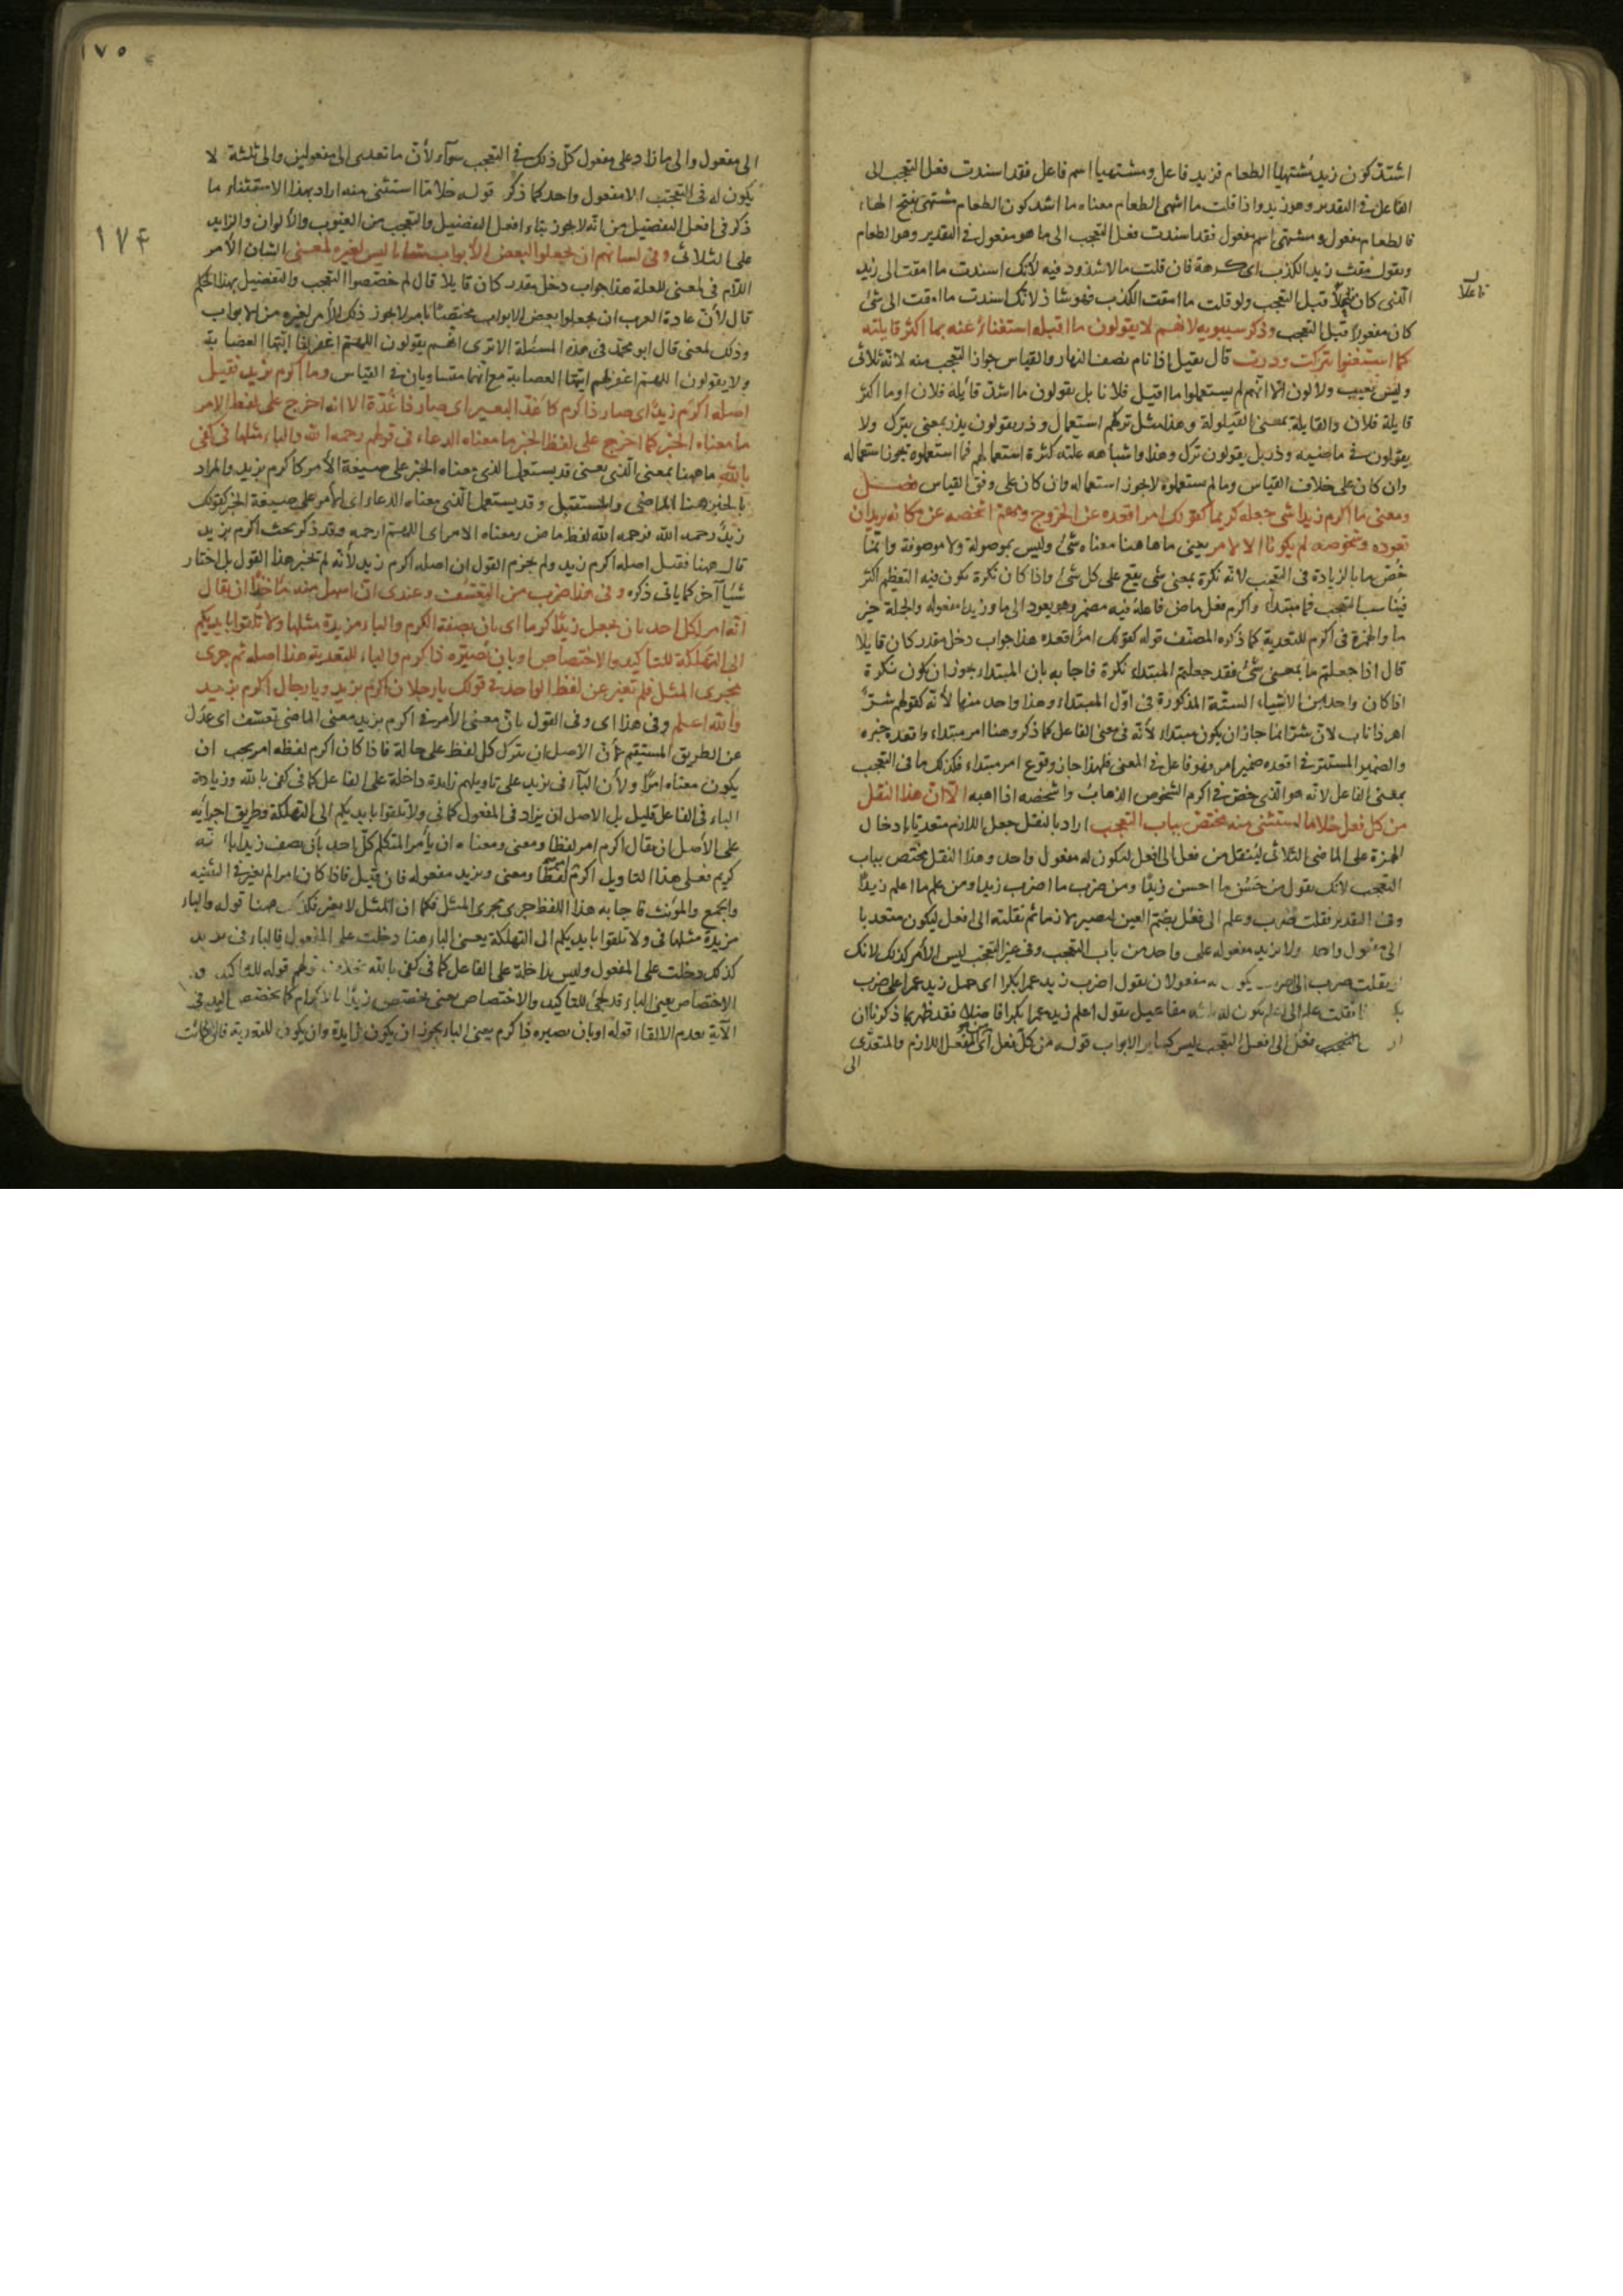 اشتدّ كون زيد مُشتهيًا الطعام فزيد فاعل ومشتهيا اسم فاعل فقد اسندت فعل التعجب الى
الفاعل في التقدير وهو زيد واذا قلت ما اشهى الطعام معناه ما اشد كون الطعام مشتهى بفتح الهاء
فالطعام مفعول ومشتهى اسم مفعول فقد اسندت فعل التعجب الى ما هو مفعول في التقدير وهو الطعام
ويقول مقت زيد الكذب اى كرهه فان قلت ما لا شذوذ فيه لانك اسندت ما امقت الى زيد
فاعلا
الذى كان فاعلا قبل التعجب ولو قلت ما امقت الكذب فهو شاذ لانك اسندت ما امقت الى شئ
كان مفعولا قبل التعجب وذكر سيبويه لانهم لا يقولون ما اقيله استغناءً عنه بما اكثر قايلته
كما استغنوا بتركت عن وذرت قال يقيل اذا نام نصف النهار والقياس جواز التعجب منه لانه ثلاثى
وليس بعيب ولا لون الا انهم لم يستعملوا ما اقيل فلانا بل يقولون ما اشد قايلة فلان او ما اكثر
قايلة فلان والقايلة بمعنى القيلولة وهذا مثل تركهم استعمال وذر يقولون يذر بمعنى يترك ولا
يقولون في ماضيه وذر بل يقولون ترك وهذا واشباهه علته كثرة استعمالهم فما استعملوه يجوز استعماله
وان كان على خلاف القياس وما لم يستعملوه لا يجوز استعماله وان كان على وفق القياس فصل
ومعنى ما اكرم زيدا شئ جعله كريما كقولك امر اقعده عن الخروج ومهم اشخصه عن مكانه يريد ان
قعوده وشخوصه لم يكونا الا لامر يعنى ما هاهنا معناه شئ وليس بموصولة ولا موصوفة وانما
خص ما بالزيادة في التعجب لانه نكرة بمعنى شئ يقع على كل شئ واذا كان نكرة يكون فيه التعظيم اكثر
فيناسب التعجب فما مبتداء واكرم فعل ماض فاعله فيه مضمر وهو يعود الى ما وزيدا مفعوله والجملة خبر
ما والهمزة في اكرم للتعدية كما ذكره المصنف قوله كقولك امر اقعده هذا جواب دخل مقدر كان قايلا
قال اذا جعلتم ما بمعنى شئ فقد جعلتم المبتداء نكرة فاجابه بان المبتداء يجوز ان يكون نكرة
اذا كان واحدا من الاشياء الستة المذكورة فى اول المبتداء وهذا واحد منها لانه كقولهم شرٌّ
اهر ذا ناب لان شرا انما جاز ان يكون مبتداء لانه فى معنى الفاعل كما ذكر وهنا امر مبتداء واقعده خبره
والضمير المستتر في اقعده ضمير امر وهو فاعل في المعنى فلهذا جاز وقوع امر مبتداء فكذلك ما فى التعجب
بمعنى الفاعل لانه هو الذى خص في اكرم الشخوص الذهاب واشخصه اذا اهبه الا ان هذا النقل
من كل فعل خلا ما استثنى منه مختص بباب التعجب اراد بالنقل جعل اللازم متعديا بادخال
الهمزة على الماضى الثلاثى لينقل من فعل الى افعل ليكون له مفعول واحد وهذا النقل مختص بباب
التعجب لانك يقول من حسُن ما احسن زيدًا ومن ضرب ما اضرب زيدا ومن علم ما اعلم زيدًا
وفى التقدير نقلت ضرب وعلم الى فعُل بضم العين ليصير لازما ثم نقلته الى افعل ليكون متعديا
الى مفعول واحد ولا يزيد مفعوله على واحد من باب التعجب وفى غير التعجب ليس الامر كذلك لانك
نقلت ضرب الى اضرب يكون له مفعولان يقول اضرب زيد عمرا بكرا اى حمل زيد عمرا على ضرب
بكر واذا نقلت علم الى اعلم يكون له ثلثه مفاعيل يقول اعلم زيد عمرا بكرا فاضلا فقد ظهر بما ذكرنا ان
التعجب فعل الى افعل التعجب ليس كساير الابواب قوله من كل فعل اى الفعل اللازم والمتعدى
الى
١٧٥
١٧٤
الى مفعول والى ما زاد على مفعول كل ذلك في التعجب سواء لان ما تعدى الى مفعولين والى ثلثة لا
يكون له فى التعجب الا مفعول واحد كما ذكر قوله خلا ما استثنى منه اراد بهذا الاستثناء ما
ذكر فى افعل التفضيل من انه لا يجوز بناء افعل التفضيل والتعجب من العيوب والالوان والزايد
على الثلاثى وفى لسانهم ان يجعلوا لبعض الابواب شانا ليس لغيره لمعنى الشان الامر
اللام فى لمعنى للعلة هذا جواب دخل مقدر كان قايلا قال لم خصصوا التعجب والتفضيل بهذا الحكم
قال لان عادة العرب ان يجعلوا بعض الابواب مختصا بامر لا يجوز ذلك الامر لغيره من الابواب
وذلك لمعنى قال ابو محمد فى هذه المسئلة الا ترى انهم يقولون اللهم اغفر لنا ايتها العصابة
ولا يقولون اللهم اغفر لهم ايتها العصابة مع انهما متساويان في القياس وما اكرم بزيد فقيل
اصله اكرم زيدٌ اى صار ذا كرم كاغدّ البعير اى صار ذا غدّة الا انه اخرج على لفظ الامر
ما معناه الخبر كما اخرج على لفظ الخبر ما معناه الدعاء فى قولهم رحمه الله والباء مثلها فى كفى
بالله ما ههنا بمعنى الذى يعنى قد يستعمل الذى معناه الخبر على صيغة الامر كاكرم بزيد والمراد
بالخبر هنا الماضى والمستقبل وقد يستعمل الذى معناه الدعاء اى الامر على صيغة الخبر كقولك
زيدٌ رحمه الله فرحمه الله لفظ ماض ومعناه الامر اى اللهم ارحمه وقد ذكر بحث اكرم بزيد
قال ههنا فقيل اصله اكرم زيد ولم يجزم القول ان اصله اكرم زيد لانه لم يختر هذا القول بل اختار
شيئا آخر كما ياتى ذكره وفى هذا ضرب من التعسّف وعندى ان اسهل منه مأخذًا ان يقال
انه امر لكل احد بان يجعل زيدًا كريما اى بان يصفه بالكرم والباء مزيدة مثلها ولا تلقوا بايديكم
الى التهلكة للتاكيد والاختصاص او بان تصيّره ذا كرم والباء للتعدية هذا اصله ثم جرى
مجرى المثل فلم تغير عن لفظ الواحد في قولك يا رجلان اكرم بزيد ويا رجال اكرم بزيد
والله اعلم وفى هذا اى وفى القول بان معنى الامر في اكرم بزيد معنى الماضى تعسّف اى عدل
عن الطريق المستقيم لان الاصل ان يترك كل لفظ على حاله فاذا كان اكرم لفظه امر يجب ان
يكون معناه امرًا ولان الباء فى بزيد على تاويلهم زايدة داخلة على الفاعل كما فى كفى بالله وزيادة
الباء فى الفاعل قليل بل الاصل ان يزاد فى المفعول كما فى ولا تلقوا بايديكم الى التهلكة وطريق اجرائه
على الاصل ان يقال اكرم امر لفظا ومعنى ومعناه ان يأمر المتكلم كل احد بأن يصف زيدا بانه
كريم فعلى هذا التاويل اكرم امر لفظا ومعنى وبزيد مفعوله فان قيل فاذا كان امرا لم يغير في التثنيه
والجمع والمؤنث فاجابه هذا اللفظ جرى مجرى المثل فكما ان المثل لا يغير فكذلك ههنا قوله والباء
مزيدة مثلها فى ولا تلقوا بايديكم الى التهلكة يعنى الباء هنا دخلت على المفعول فالباء فى بزيد
كذلك دخلت على المفعول وليس داخلة على الفاعل كما فى كفى بالله بخلاف قولهم قوله للتاكيد و
الاختصاص يعنى الباء قد يجئ للتاكيد والاختصاص يعنى يختص زيدًا بالاكرام كما يختص اليد فى
الآية بعدم الالقاء قوله او بان تصيره ذا كرم يعنى الباء يجوز ان يكون زايدة وان يكون للتعدية فان كانت